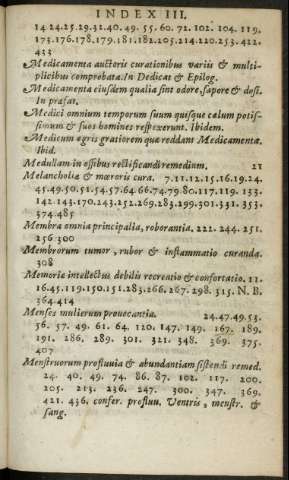 INDEX III.
14 24. 25. 29. 32. 40. 49. 55. 60. 72. 102. 104. 119.
173. 176. 178. 179. 181. 182. 205. 214. 220. 253. 422.
433
Medicamenta auctoris curationibus variis & multi-
plicibus comprobata. In Dedicat & Epilog.
Medicamenta eiusdem qualia sint odore, sapore & dosi.
In præfat.
Medici omnium temporum suum quisque cœlum potis-
simum & suos homines respexerunt. Ibidem.
Medicum ægris gratiorem quæ reddant Medicamenta.
Ibid.
Medullam in ossibus rectificandi remedium. 21
Melancholiæ & mœroris cura. 7. 11. 12. 15. 16. 19. 24.
41. 49. 50. 51. 54. 57. 64. 66. 74. 79. 80. 117. 119. 133.
142. 143. 170. 243. 252. 269. 283. 299. 301. 331. 353.
374. 485
Membra omnia principalia, roborantia. 222. 244. 251.
256 300
Membrorum tumor, rubor & inflammatio curanda.
308
Memoriæ intellectus debilis recreatio & confortatio. 11.
16. 45. 119. 150. 151. 283. 266. 267. 298. 315. N. B.
364. 414
Menses mulierum prouocantia. 24. 47. 49. 53.
56. 57. 49. 61. 64. 120. 147. 149. 167. 189.
191. 286. 289. 301. 321. 348. 369. 375.
407
Menstruorum profluuia & abundantiam sistendi remed.
24. 40. 49. 74. 86. 87. 102. 117. 200.
205. 213. 236. 247. 300. 347. 369.
421. 436. confer. profluu. Ventris, menstr. &
sang.